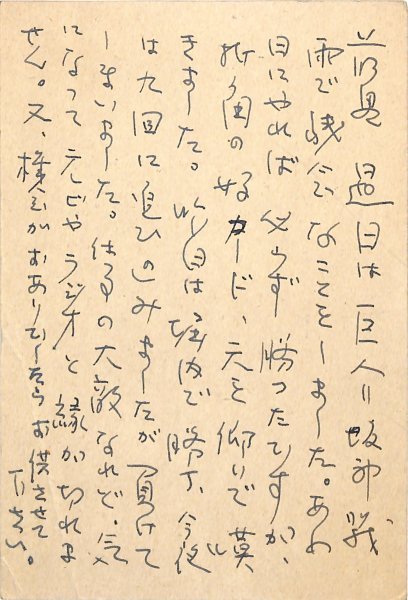 前略 過日は巨人‖阪神戦
雨で残念なことをしました。あの
日にやれば必らず勝つたですが、
折角の好カード、天を仰いで嘆
きました。昨日は堀内で勝了、今夜
は九回に追ひこみましたが 負けて
しまいました。仕事の大敵なれど、気
になつてテレビやラジオと縁が切れま
せん。又、機会がおありでしたらお供させて
下さい。